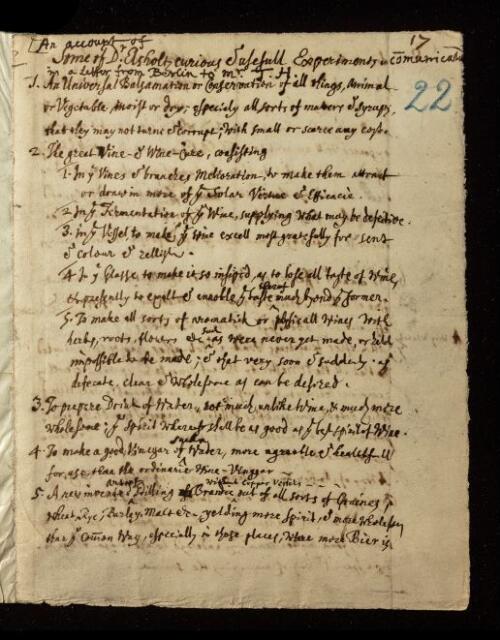 [An account of
17
Some of Dr. Elsholt, curious & usefull Experiments, comunicated
in a Letter from Berlin to Mr. H
22
1. An Universal Balsamation or Conservation of all things, Animal
or Vegetable, Moist or dry; especialy all sorts of matters & syrups,
that they may not turne & corrupt; with small or scarce any cost.
2. The great Vine- & Wine-Cure, consisting
1. In ye Vines & branches Melioration, to make them attract
or draw in more of ye Solar Vertue & Efficacie.
2. In ye Fermentation of ye Wine, supplying what may be defective.
3. In ye Vessel to make ye Wine excell most gratefully for sent
& colour & rellish.
4. In ye Glasse, to make it so insipid, as to lose all taste of Wine,
& presently to exalt & enable ye taste thereof much beyond ye former.
5. To make all sorts of aromatick or physicall Wines with
herbs, roots, flowers &c. such as were never yet made, or held
impossible to be made; & that very soon & suddenly. as
defecate, clear & Wholesome as can be desired.
3. To prepare Drink of Water, not much unlike Wine, & much more
wholesome; ye Spirit whereof shall be as good as ye best spirit of Wine.
4. To make a good Vinegar of Water, more agreeable & healthfull
for use, than the ordinarie Wine-Vinegar
5. A new invented Distilling of Brandie without Copper Vessels out of all sorts of Graines,
Wheat, Rye, Barley, Malt &c. yelding more Spirit, & more wholesom
than ye comon Way, especially in those places, where more Bier is